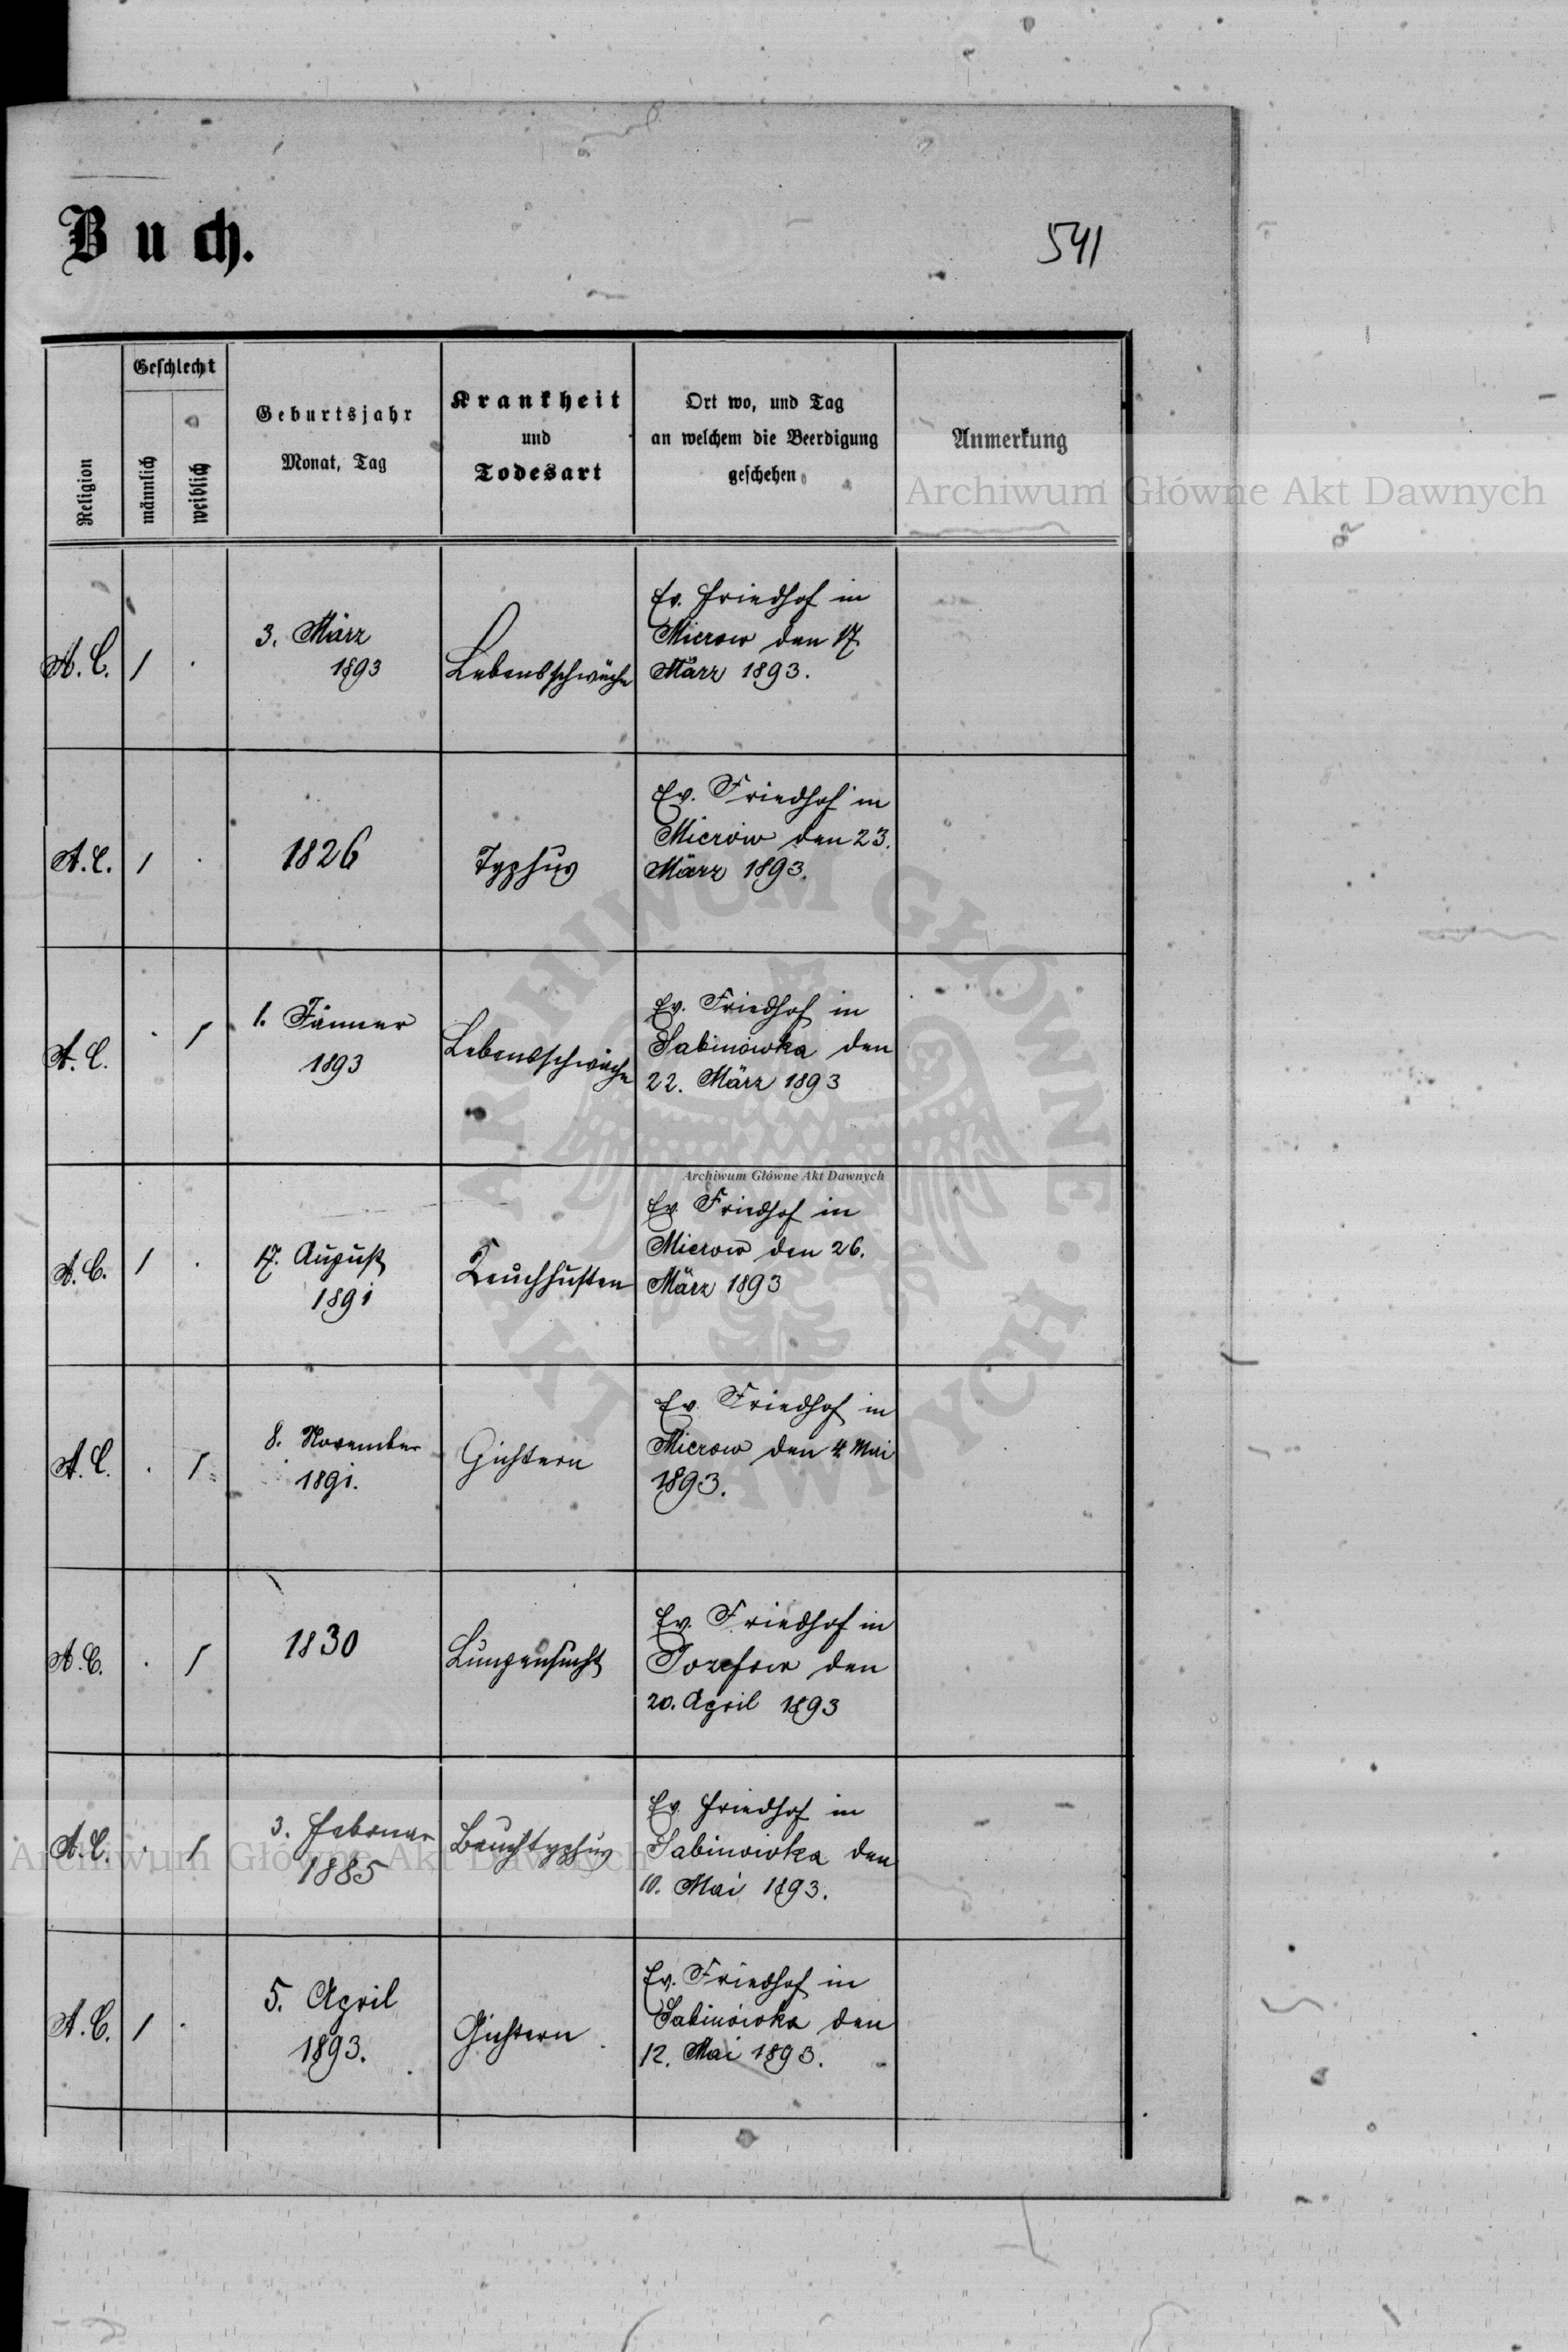 Buch.
541
Religion
Geschlecht
männlich
weiblich
Geburtsjahr
Monat, Tag
Krankheit
und
Todesart
Ort wo, und Tag
an welchem die Beerdigung
geschehen
Anmerkung
Archiwum Główne Akt Dawnych
A. C.
1
.
3. März
1893
Lebensschwäche
Ev. Friedhof in
Mierow den 17.
März 1893.
A. C.
1
.
1826
Typhus
Ev. Friedhof in
Mierów den 23.
März 1893.
A. C.
.
1
1. Jänner
1893
Lebensschwäche
Ev. Friedhof in
Sabinówka den
22. März 1893
Archiwum Główne Akt Dawnych
A. C.
1
.
17. August
1891
Keuchhusten
Ev. Friedhof in
Mierow den 26.
März 1893
A. C.
.
1
8. November
1891.
Gichtern
Ev. Friedhof in
Mierow den 4. Mai
1893.
A. C.
.
1
1830
Lungensucht
Ev. Friedhof in
Jozefow den
20. April 1893
A. C.
.
1
3. Februar
1885
Bauchtyphus
Ev. Friedhof in
Sabinówka den
10. Mai 1893.
Archiwum Główne Akt Dawnych
A. C.
1
.
5. April
1893.
Gichtern
Ev. Friedhof in
Sabinówka den
12. Mai 1893.
ARCHIWUM GŁÓWNE AKT DAWNYCH